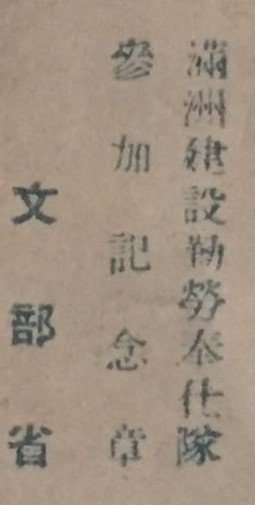 滿洲建設勤勞奉仕隊
參加記念章
文部省